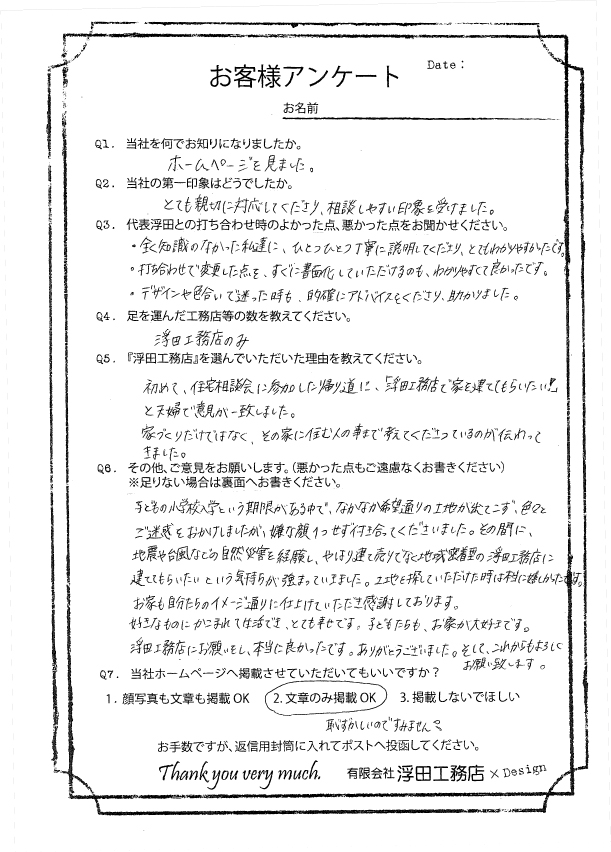 お客様アンケート
Date:
お名前
Q1. 当社を何でお知りになりましたか。
ホームページを見ました。
Q2. 当社の第一印象はどうでしたか。
とても親切に対応してくださり、相談しやすい印象を受けました。
Q3. 代表浮田との打ち合わせ時のよかった点、悪かった点をお聞かせください。
・全く知識のなかった私達に、ひとつひとつ丁寧に説明してくださり、とてもわかりやすかったです。
・打ち合わせで変更した点を、すぐに書面化していただけるのも、わかりやすくて良かったです。
・デザインや色合いで迷った時も、的確にアドバイスをくださり、助かりました。
Q4. 足を運んだ工務店等の数を教えてください。
浮田工務店のみ
Q5. 『浮田工務店』を選んでいただいた理由を教えてください。
初めて、住宅相談会に参加した帰り道に、「浮田工務店で家を建ててもらいたい!」
と夫婦で意見が一致しました。
家づくりだけではなく、その家に住む人の事まで考えてくださっているのが伝わって
きました。
Q6. その他、ご意見をお願いします。(悪かった点もご遠慮なくお書きください)
※足りない場合は裏面へお書きください。
子どもの小学校入学という期限がある中で、なかなか希望通りの土地が出てこず、色々と
ご迷惑をおかけしましたが、嫌な顔1つせず付き合ってくださいました。その間に、
地震や台風などの自然災害を経験し、やはり建て売りでなく地域密着型の浮田工務店に
建ててもらいたいという気持ちが強まっていきました。土地を探していただけた時は本当に嬉しかったです。
お家も自分たちのイメージ通りに仕上げていただき感謝しております。
好きなものにかこまれて生活でき、とても幸せです。子どもたちも、お家が大好きです。
浮田工務店にお願いをし、本当に良かったです。ありがとうございました。そして、これからもよろしく
お願い致します。
Q7. 当社ホームページへ掲載させていただいてもいいですか?
1. 顔写真も文章も掲載 OK 2. 文章のみ掲載 OK 3. 掲載しないでほしい
恥ずかしいのですみません
お手数ですが、返信用封筒に入れてポストへ投函してください。
Thank you very much. 有限会社 浮田工務店 × Design